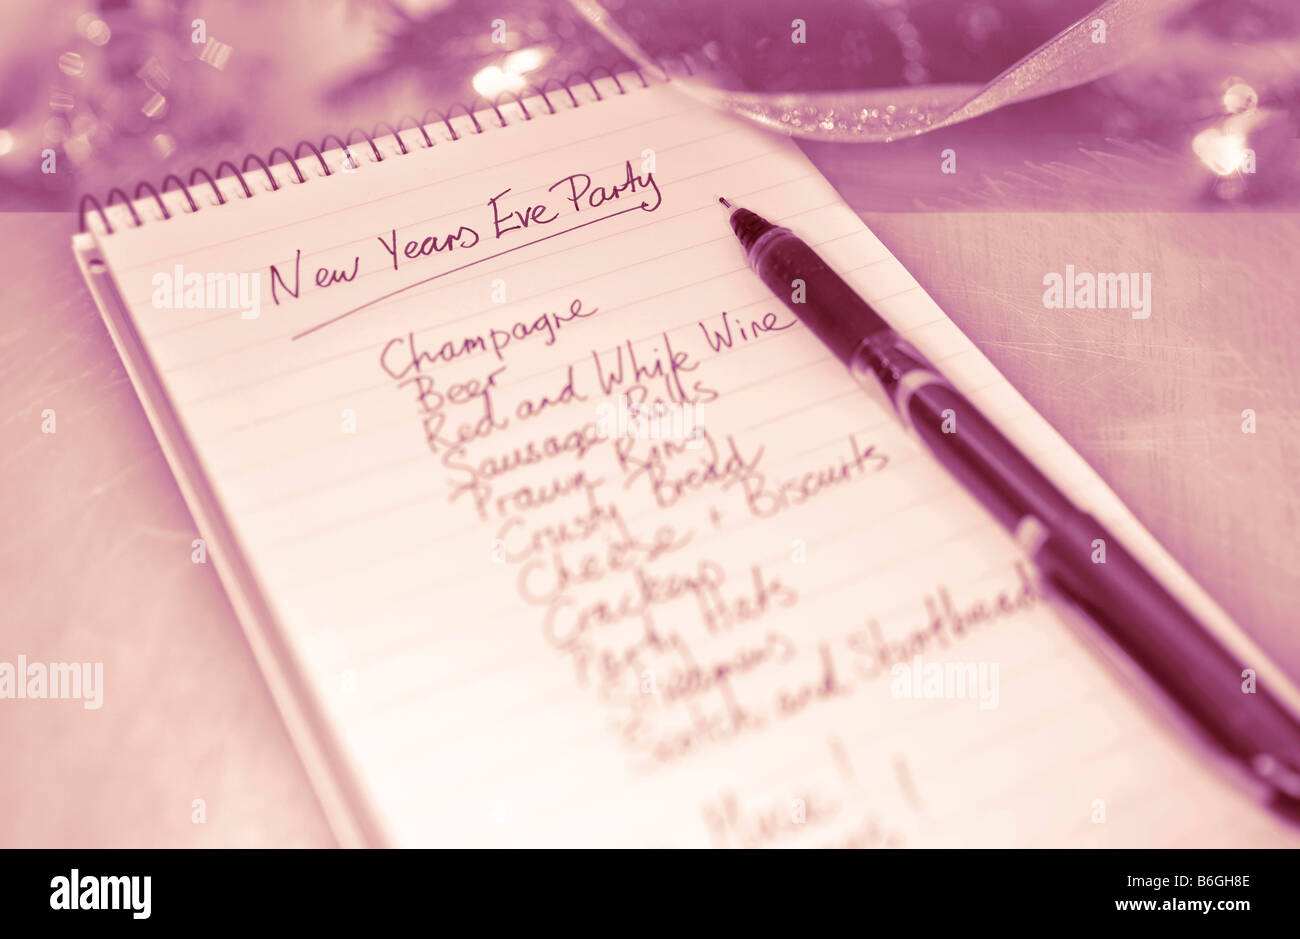 New Years Eve Party
Champagne
Beer
Red and White Wine
Sausage Rolls
Prawn Ring
Crusty Bread
Cheese + Biscuits
Crackers
Party Hats
Streamers
Scotch and Shortbread
Music!
alamy
Image ID: B6GH8E
www.alamy.com